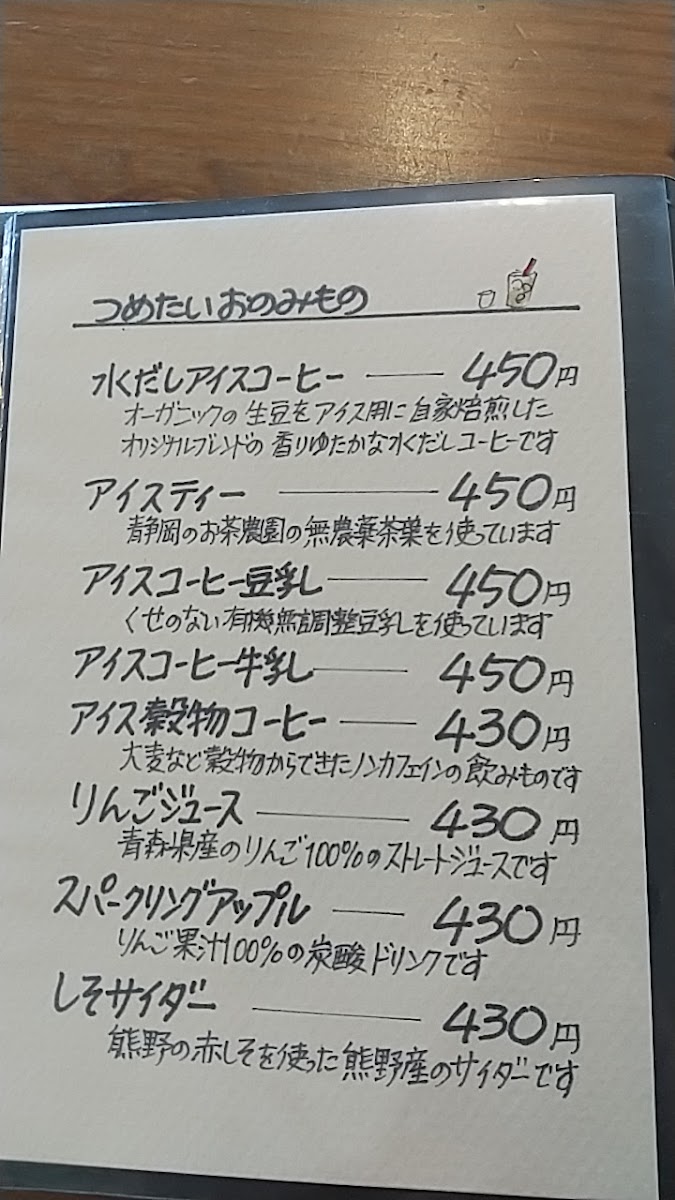 つめたいおのみもの
水くだしアイスコーヒー ―― 450円
オーガニックの生豆をアイス用に自家焙煎した
オリジナルブレンドの香りゆたかな水くだしコーヒーです
アイスティー ―― 450円
静岡のお茶農園の無農薬茶葉を使っています
アイスコーヒー豆乳 ―― 450円
くせのない有機無調整豆乳を使っています
アイスコーヒー牛乳 ―― 450円
アイス穀物コーヒー ―― 430円
大麦など穀物からできたノンカフェインの飲みものです
りんごジュース ―― 430円
青森県産のりんご100%のストレートジュースです
スパークリングアップル ―― 430円
りんご果汁100%の炭酸ドリンクです
しそサイダー ―― 430円
熊野の赤しそを使った熊野産のサイダーです